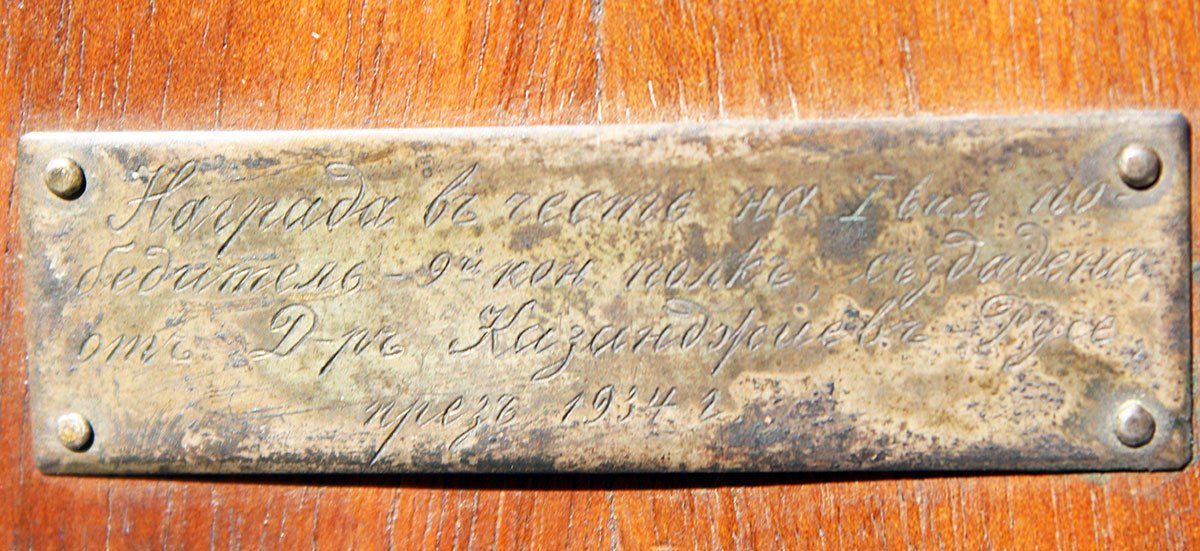 Награда въ честь на I вия по-
бедитель – 9й кон. полкъ, създадена
отъ Д-ръ Казанджиевъ – Русе
презъ 1934 г